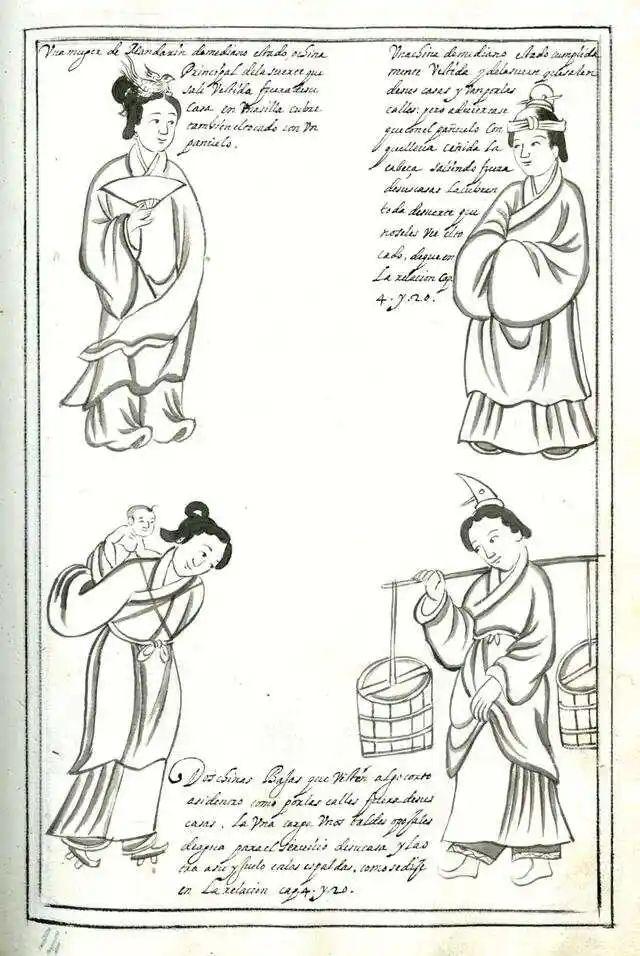 Una muger de Mandarin de mediano estado, o china
Principal de la suerte que
sale Vestida fuera de su
casa en Una silla cubre
tambien el tocado con Un
pañuelo.
Una china de mediano estado cumplida
mente Vestida y de la suerte q̃ salen
de sus casas y Van por las
calles: pero adviertase
que con el pañuelo Con
que lleva ceñida la
cabeça saliendo fuera
de sus casas la cubren
toda de suerte que
no se les Ver el to
cado, de que en
La relacion Cap.
4. y. 20.
Dos chinas Bajas que Visten algo corto
asi dentro como por las calles fuera de sus
casas. la Una carga Unos baldes
de agua para el servicio de su casa y la o
tra asu y suelo en las espaldas, como se dise
en La relacion cap. 4. y. 20.
14